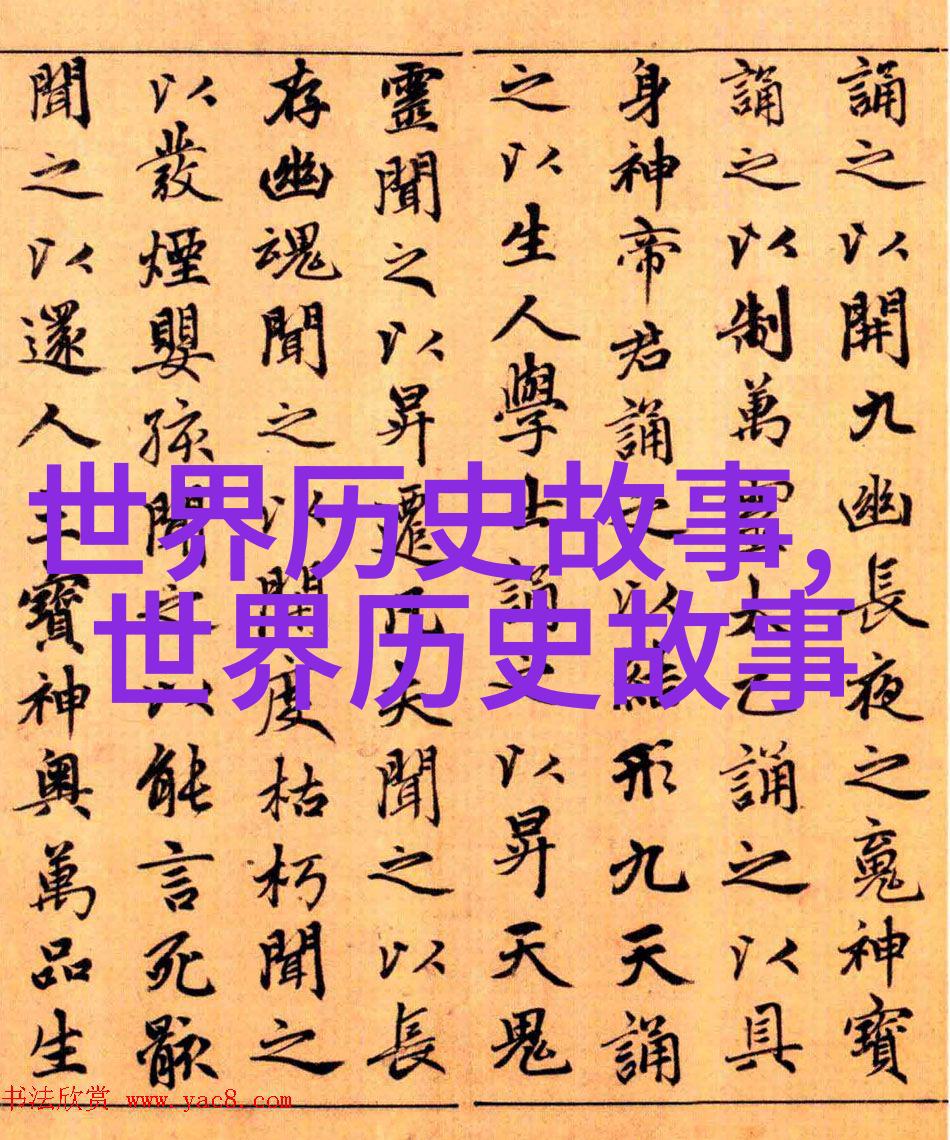 誦之以開九幽長夜之䰟神寶
誦之以制萬靈太乙誦之以具
身神帝君誦之以結形九天誦
之以生人學士誦之以昇天鬼
靈聞之以昇遷凡夫聞之以長
存幽魂聞之以開度枯朽聞之
以發煙嬰孩聞之以能言死骸
聞之以還人三寶神奧萬品生
世界历史故事,
世界历史故事
书法欣赏 www.yac8.com